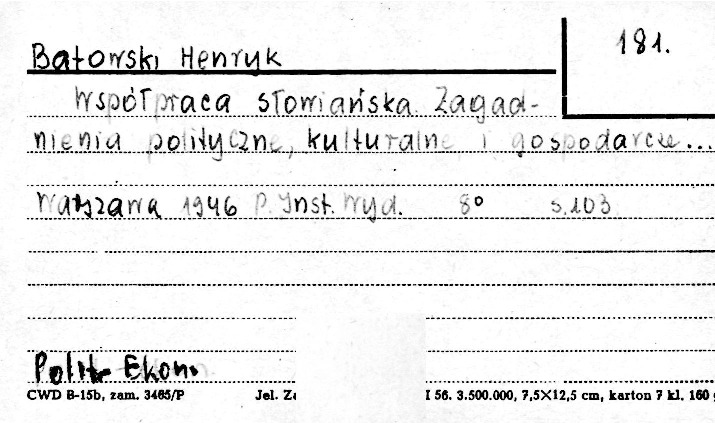 181.
Batowski Henryk
Współpraca słowiańska. Zagad-
nienia polityczne, kulturalne i gospodarcze...
Warszawa 1946 P. Inst. Wyd. 8° s.103
Polit. Ekon.
CWD B-15b, zam. 3465/P Jel. Za I 56. 3.500.000, 7,5×12,5 cm, karton 7 kl. 160 g